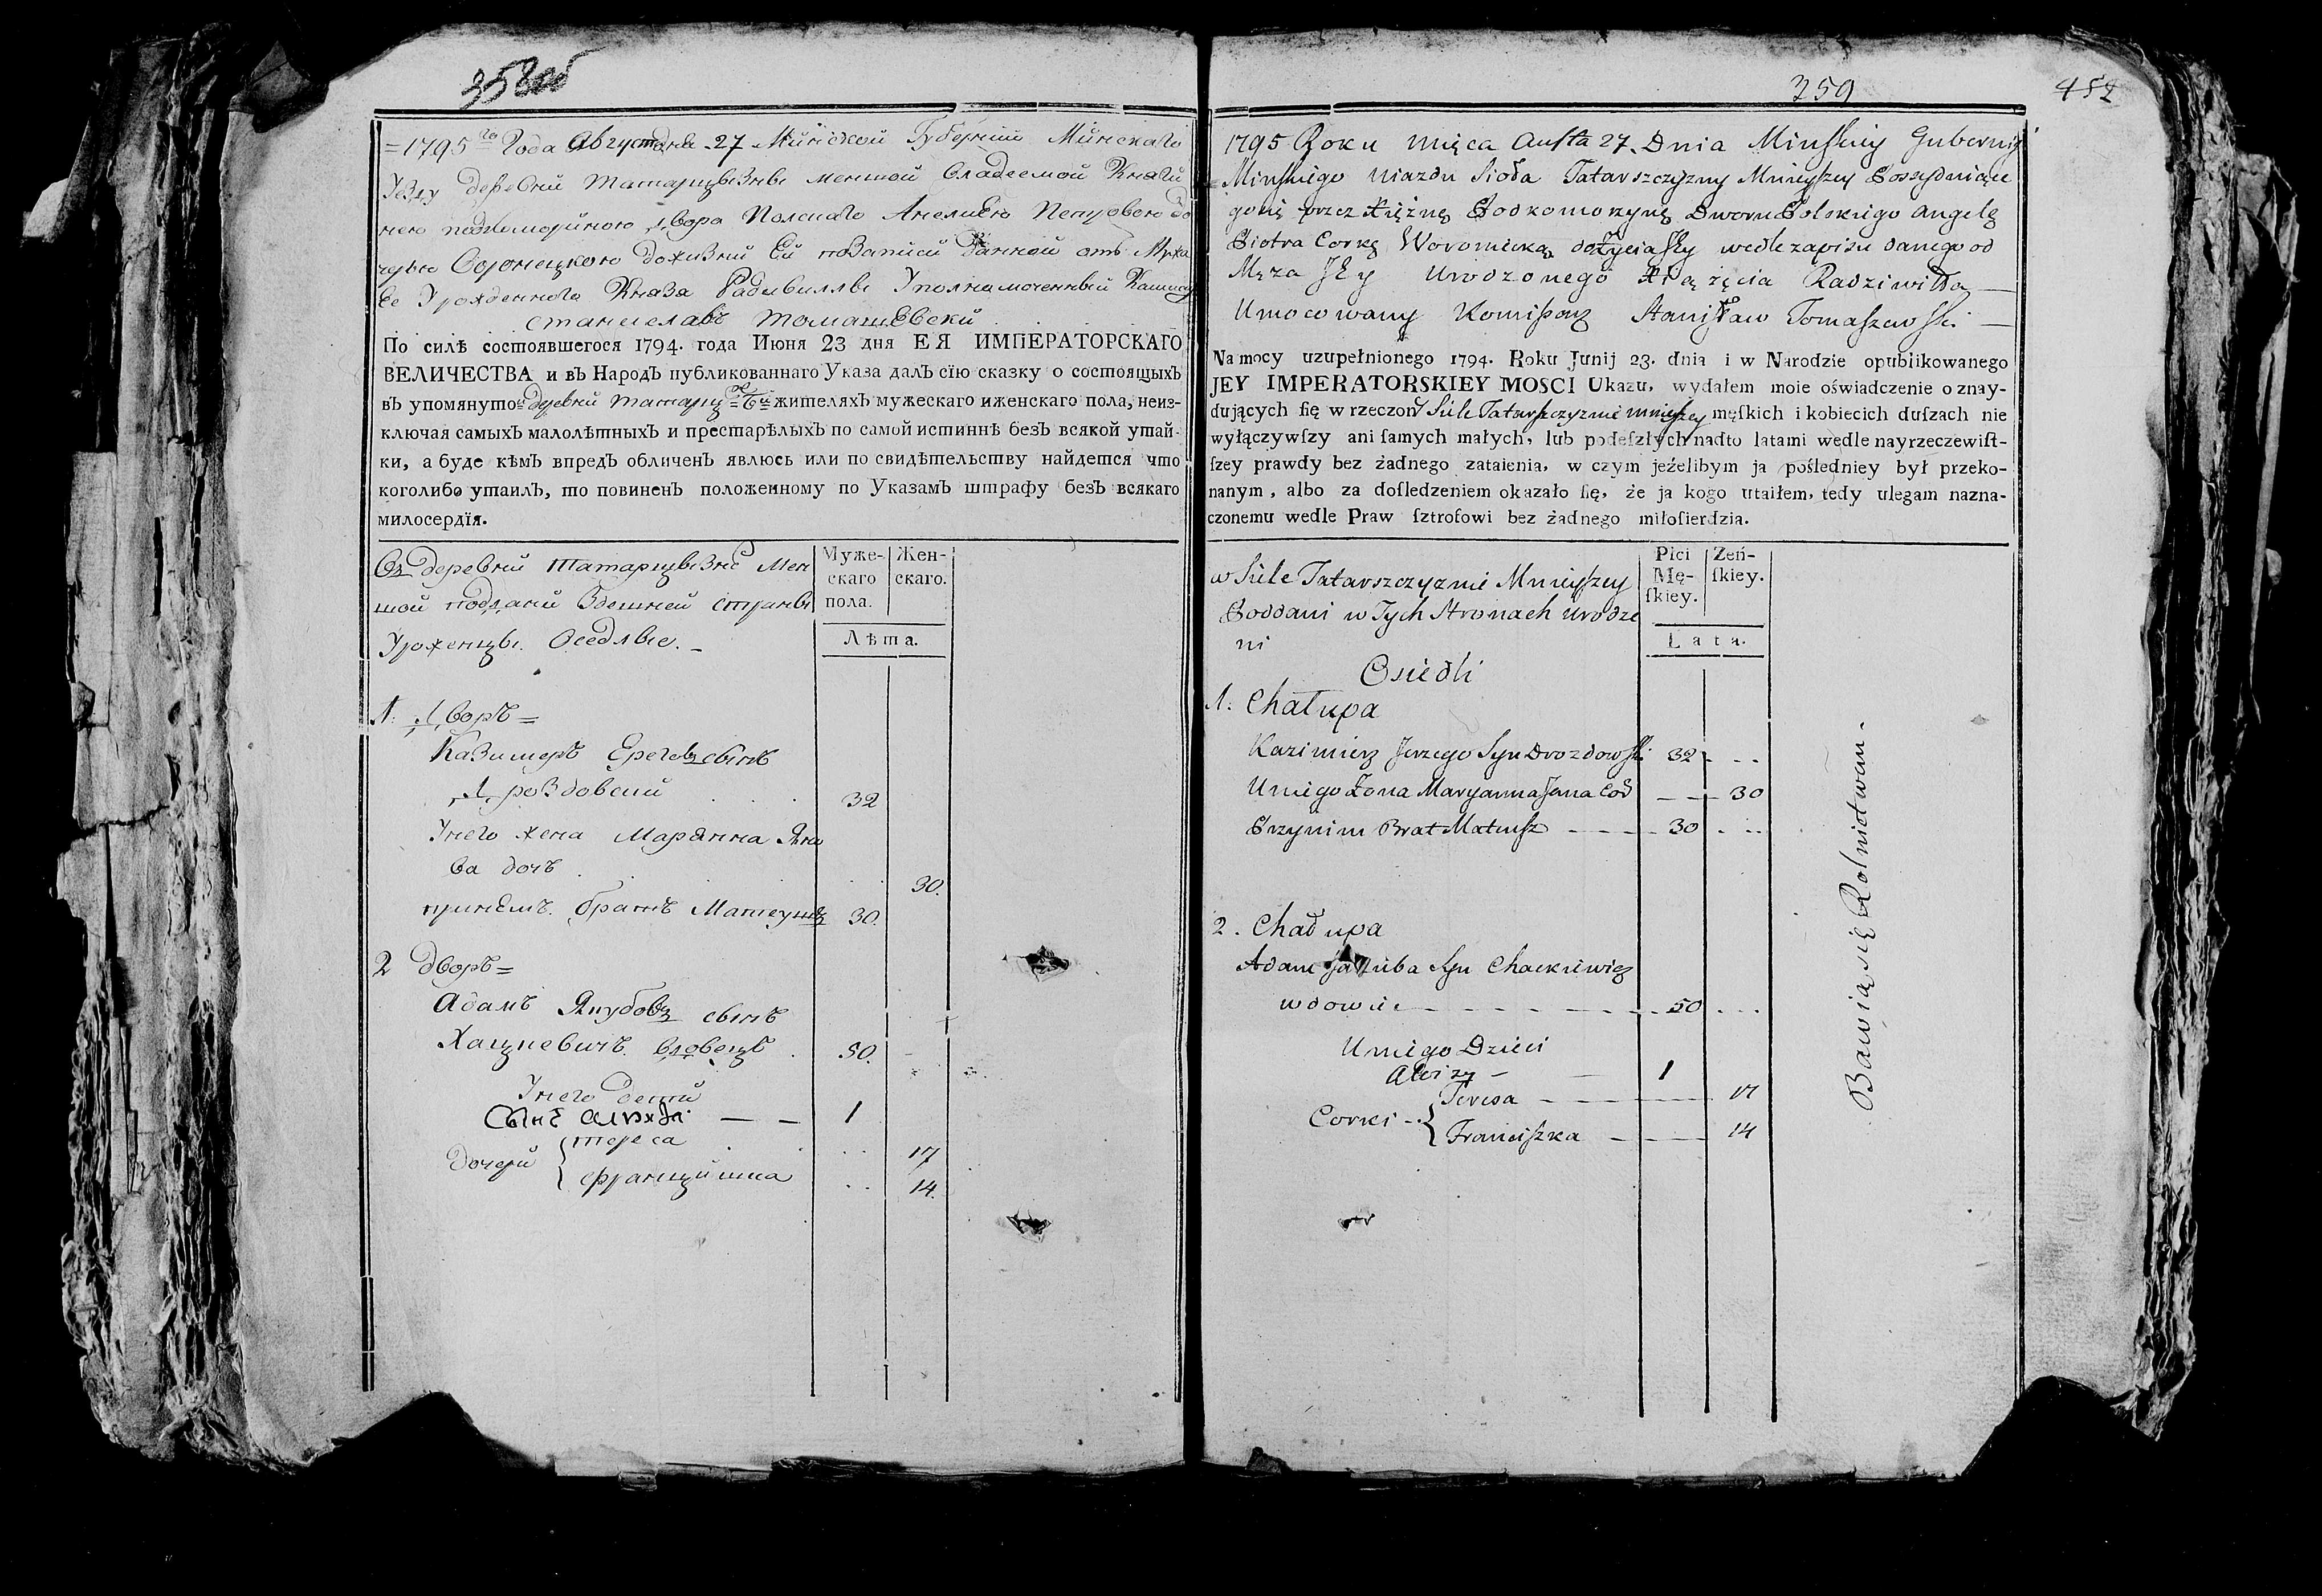 358об
=1795го Года Августа дня 27 Минской Губернии Минскаго
Уезду деревни Татарщызны меншой владеемой Княги
нею подкомориною двора Полскаго Анелиею Петровою до
черью Воронецкою дожизни Ей по записи данной отъ Мужа
Ее Урожденнога Князя Радивиллы Уполнамоченный
Станиславъ Томашевски
По силѣ состоявшегося 1794. года Июня 23 дня ЕЯ ИМПЕРАТОРСКАГО
ВЕЛИЧЕСТВА и въ Народъ публикованнаго Указа далъ сїю сказку о состоящыхъ
въ упомянутой деревни Татарщ жителяхъ мужескаго иженскаго пола, неиз-
ключая самыхъ малолѣтныхъ и престарѣлыхъ по самой истиннѣ безъ всякой утай-
ки, а буде кѣмъ впредъ обличенъ явлюсь или по свидѣтельству найдется что
коголибо утаилъ, то повиненъ положенному по Указамъ штрафу безъ всякаго
милосердїя.
Въ деревни Татарщызне Мен
шой подданй Здешней страны
Уроженцы. Оседлые. -
Муже-
скаго
пола.
Жен-
скаго.
Лѣта.
1: Дворъ =
Казимеръ Ерегевъ сынъ
Дроздовский 32
Унего жена Марянна Яно
ва дочь 30.
принемъ братъ Матеушъ 30.
2 дворъ =
Адамъ Якубовъ сынъ
Хацкевичъ вдовецъ 50.
Унего дети
Сынъ 1
Дочери { Тереса 17
Францишка 14.
359
452
1795 Roku mięca Austa 27. Dnia Minskiy Gubernij
Minskiego Uiazdu Sioła Tatarszczyzny Mnieyszey Possyduiące
gosię przez Xiężnę Podkomorzynę Dworu Polskiego Angelę
Piotra Corkę Woroniecką dożycia Jey wedle zapisu danego od
Męża Jey Urodzonego Xiążęcia Radziwiłła
Umocowany Komisarz Stanisław Tomaszewski
Na mocy uzupełnionego 1794. Roku Junij 23. dnia i w Narodzie opublikowanego
JEY IMPERATORSKIEY MOSCI Ukazu, wydałem moie oświadczenie o znay-
dujących ſię w rzeczoney Siele Tatarszczyznie mnieyszey męſkich i kobiecich duſzach nie
wyłączywſzy ani ſamych małych, lub podeſzłych nadto latami wedle nayrzeczewiſt-
ſzey prawdy bez żadnego zataienia, w czym jeżelibym ja pośledniey był przeko-
nanym, albo za doſledzeniem okazało ſię, że ja kogo utaiłem, tedy ulegam nazna-
czonemu wedle Praw ſztrofowi bez żadnego miłoſierdzia.
w Siele Tatarszczyznie Mnieyszey
Poddani w Tych Stronach urodze
ni
Osiedli
Płci
Mę-
ſkiey.
Zeń-
ſkiey.
Lata.
1: Chałupa
Kazimierz Jerzego Syn Drozdowski 32
Uniego Zona Maryanna Jana Cod 30
Przynim Brat Mateusz 30
2. Chałupa
Adam Jakuba Syn Chackiewicz
wdowiec 50
Uniego Dzieci
Aloizy 1
Corki { Teresa 17
Franciszka 14
Bawią się Rolnictwem.